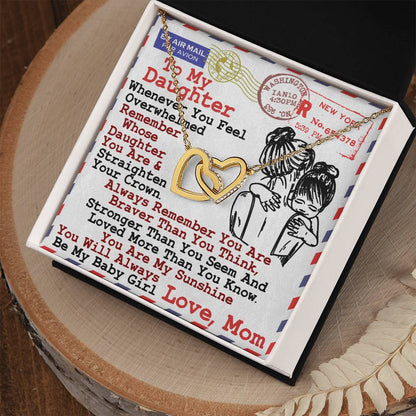 BY AIR MAIL
PAR AVION
To My
Daughter
Whenever You Feel
Overwhelmed
Remember
Whose
Daughter
You Are &
Straighten
Your Crown
Always Remember You Are
Braver Than You Think,
Stronger Than You Seem And
Loved More Than You Know.
You Are My Sunshine
You Will Always
Be My Baby Girl
Love, Mom
WASHINGTON
4:30PM
R
NEW YORK